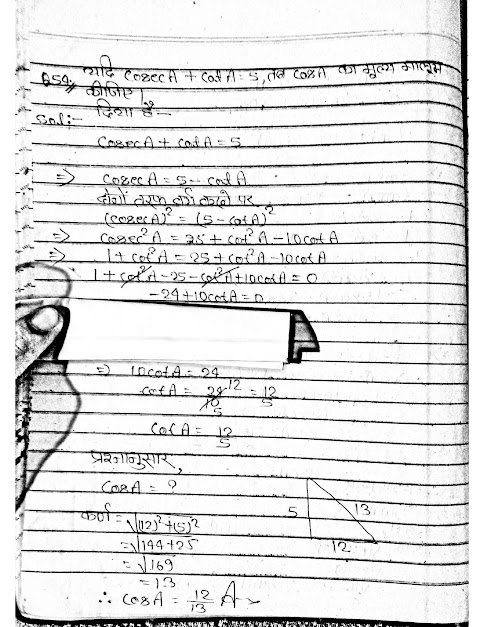 854, यदि cosecA + cotA = 5, तब cosA का मूल्य मालूम
कीजिए।
Sol:- दिया है—
cosecA + cotA = 5
=> cosecA = 5 - cotA
दोनों तरफ वर्ग करने पर
(cosecA)² = (5 - cotA)²
=> cosec²A = 25 + cot²A - 10cotA
=> 1 + cot²A = 25 + cot²A - 10cotA
1 + cot²A - 25 - cot²A + 10cotA = 0
-24 + 10cotA = 0
=> 10cotA = 24
cotA = 24/10 12/5 = 12/5
cotA = 12/5
प्रश्नानुसार,
cosA = ?
कर्ण = √(12)² + (5)²
= √144 + 25
= √169
= 13
5
13
12
∴ cosA = 12/13 A